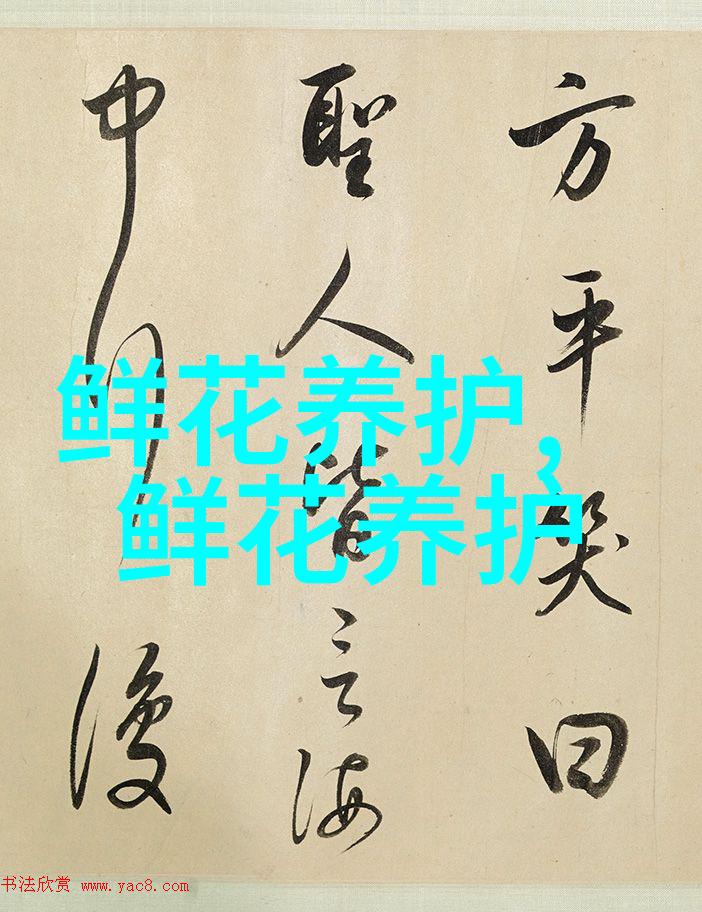 方平笑曰
聖人皆言海
中行復
鲜花养护,
鲜花养护
书法欣赏 www.yac8.com